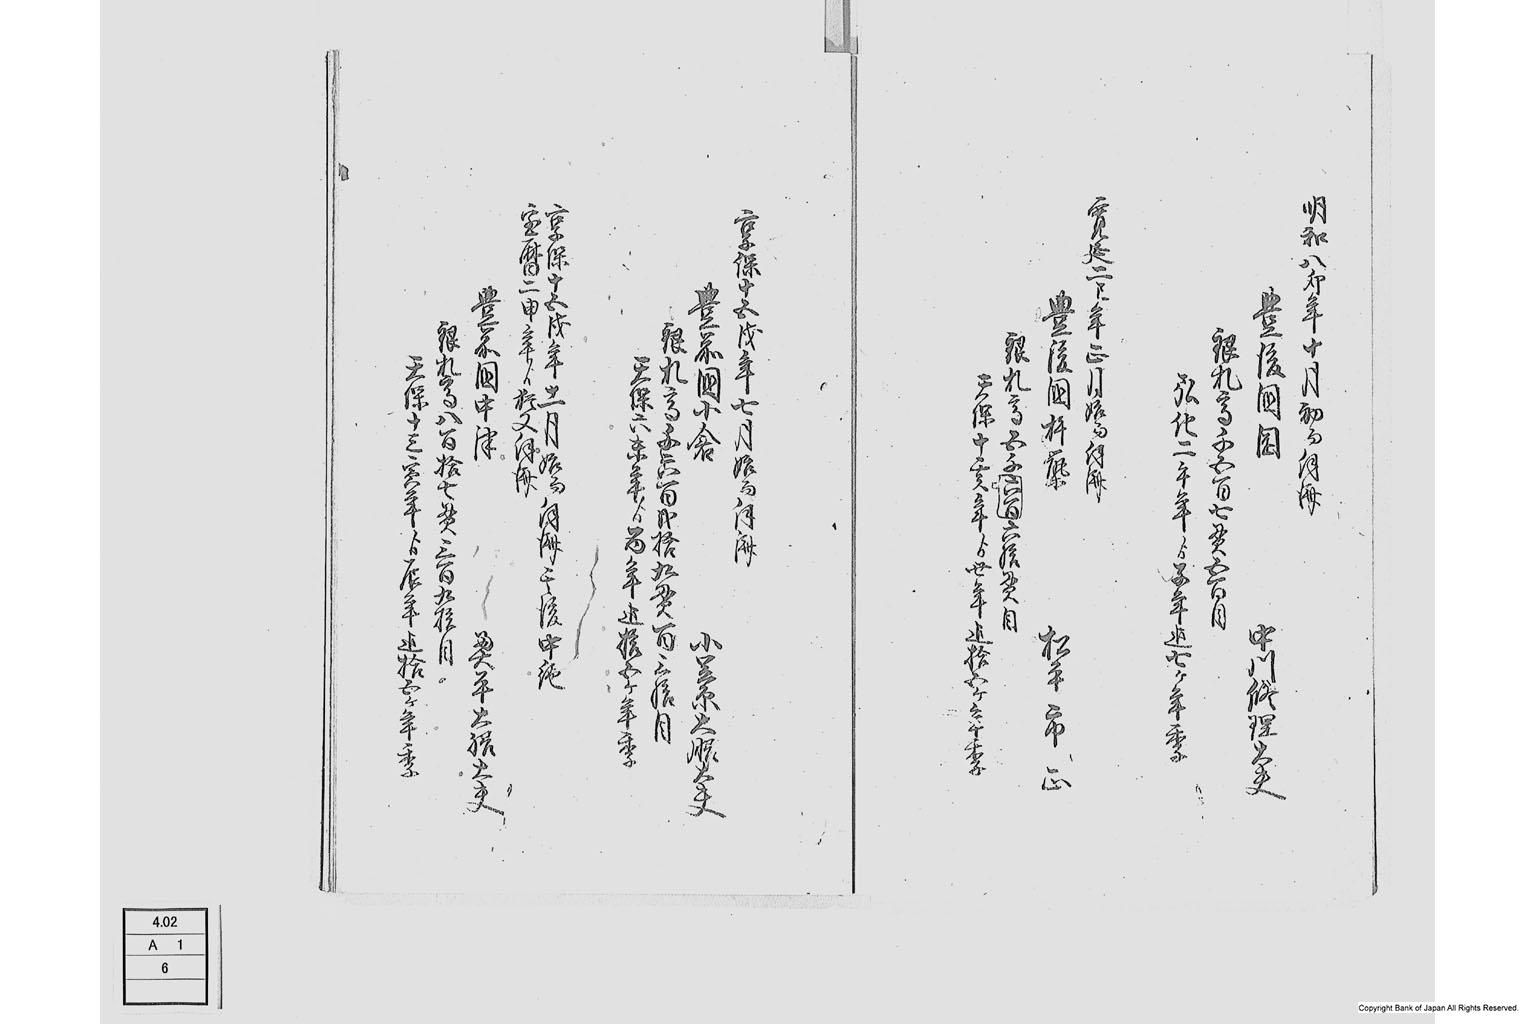 明和八卯年十月初而伺済
豊後国岡
中川修理大夫
銀札高千五百七貫五百目
弘化二年より亥年迄七ヶ年季
寛延二巳年正月始而伺済
豊後国杵築
松平市正
銀札高五千六百六拾貫目
天保十亥年より丑年迄拾五ヶ年季
享保十五戌年七月始而伺済
豊前国小倉
小笠原大膳大夫
銀札高 百 拾九貫百三拾目
天保六未年より酉年迄拾五ヶ年季
享保十五戌年十一月始而伺済其後中絶
宝暦二申年より猶又伺済
豊前国中津
奥平大膳大夫
銀札高八百拾七貫三百九拾目
天保十三寅年より辰年迄拾五ヶ年季
4.02
A 1
6
Copyright Bank of Japan All Rights Reserved.